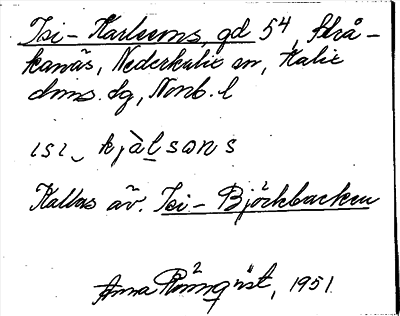 Isi-Karlsons, gd 54, Strå-
kanäs, Nederkalix sn, Kalix
dms. dg, Norrb. l
ısı‿ kjàlsons
Kallas äv. Isi-Björkbacken
Anna Rönnqvist, 1951